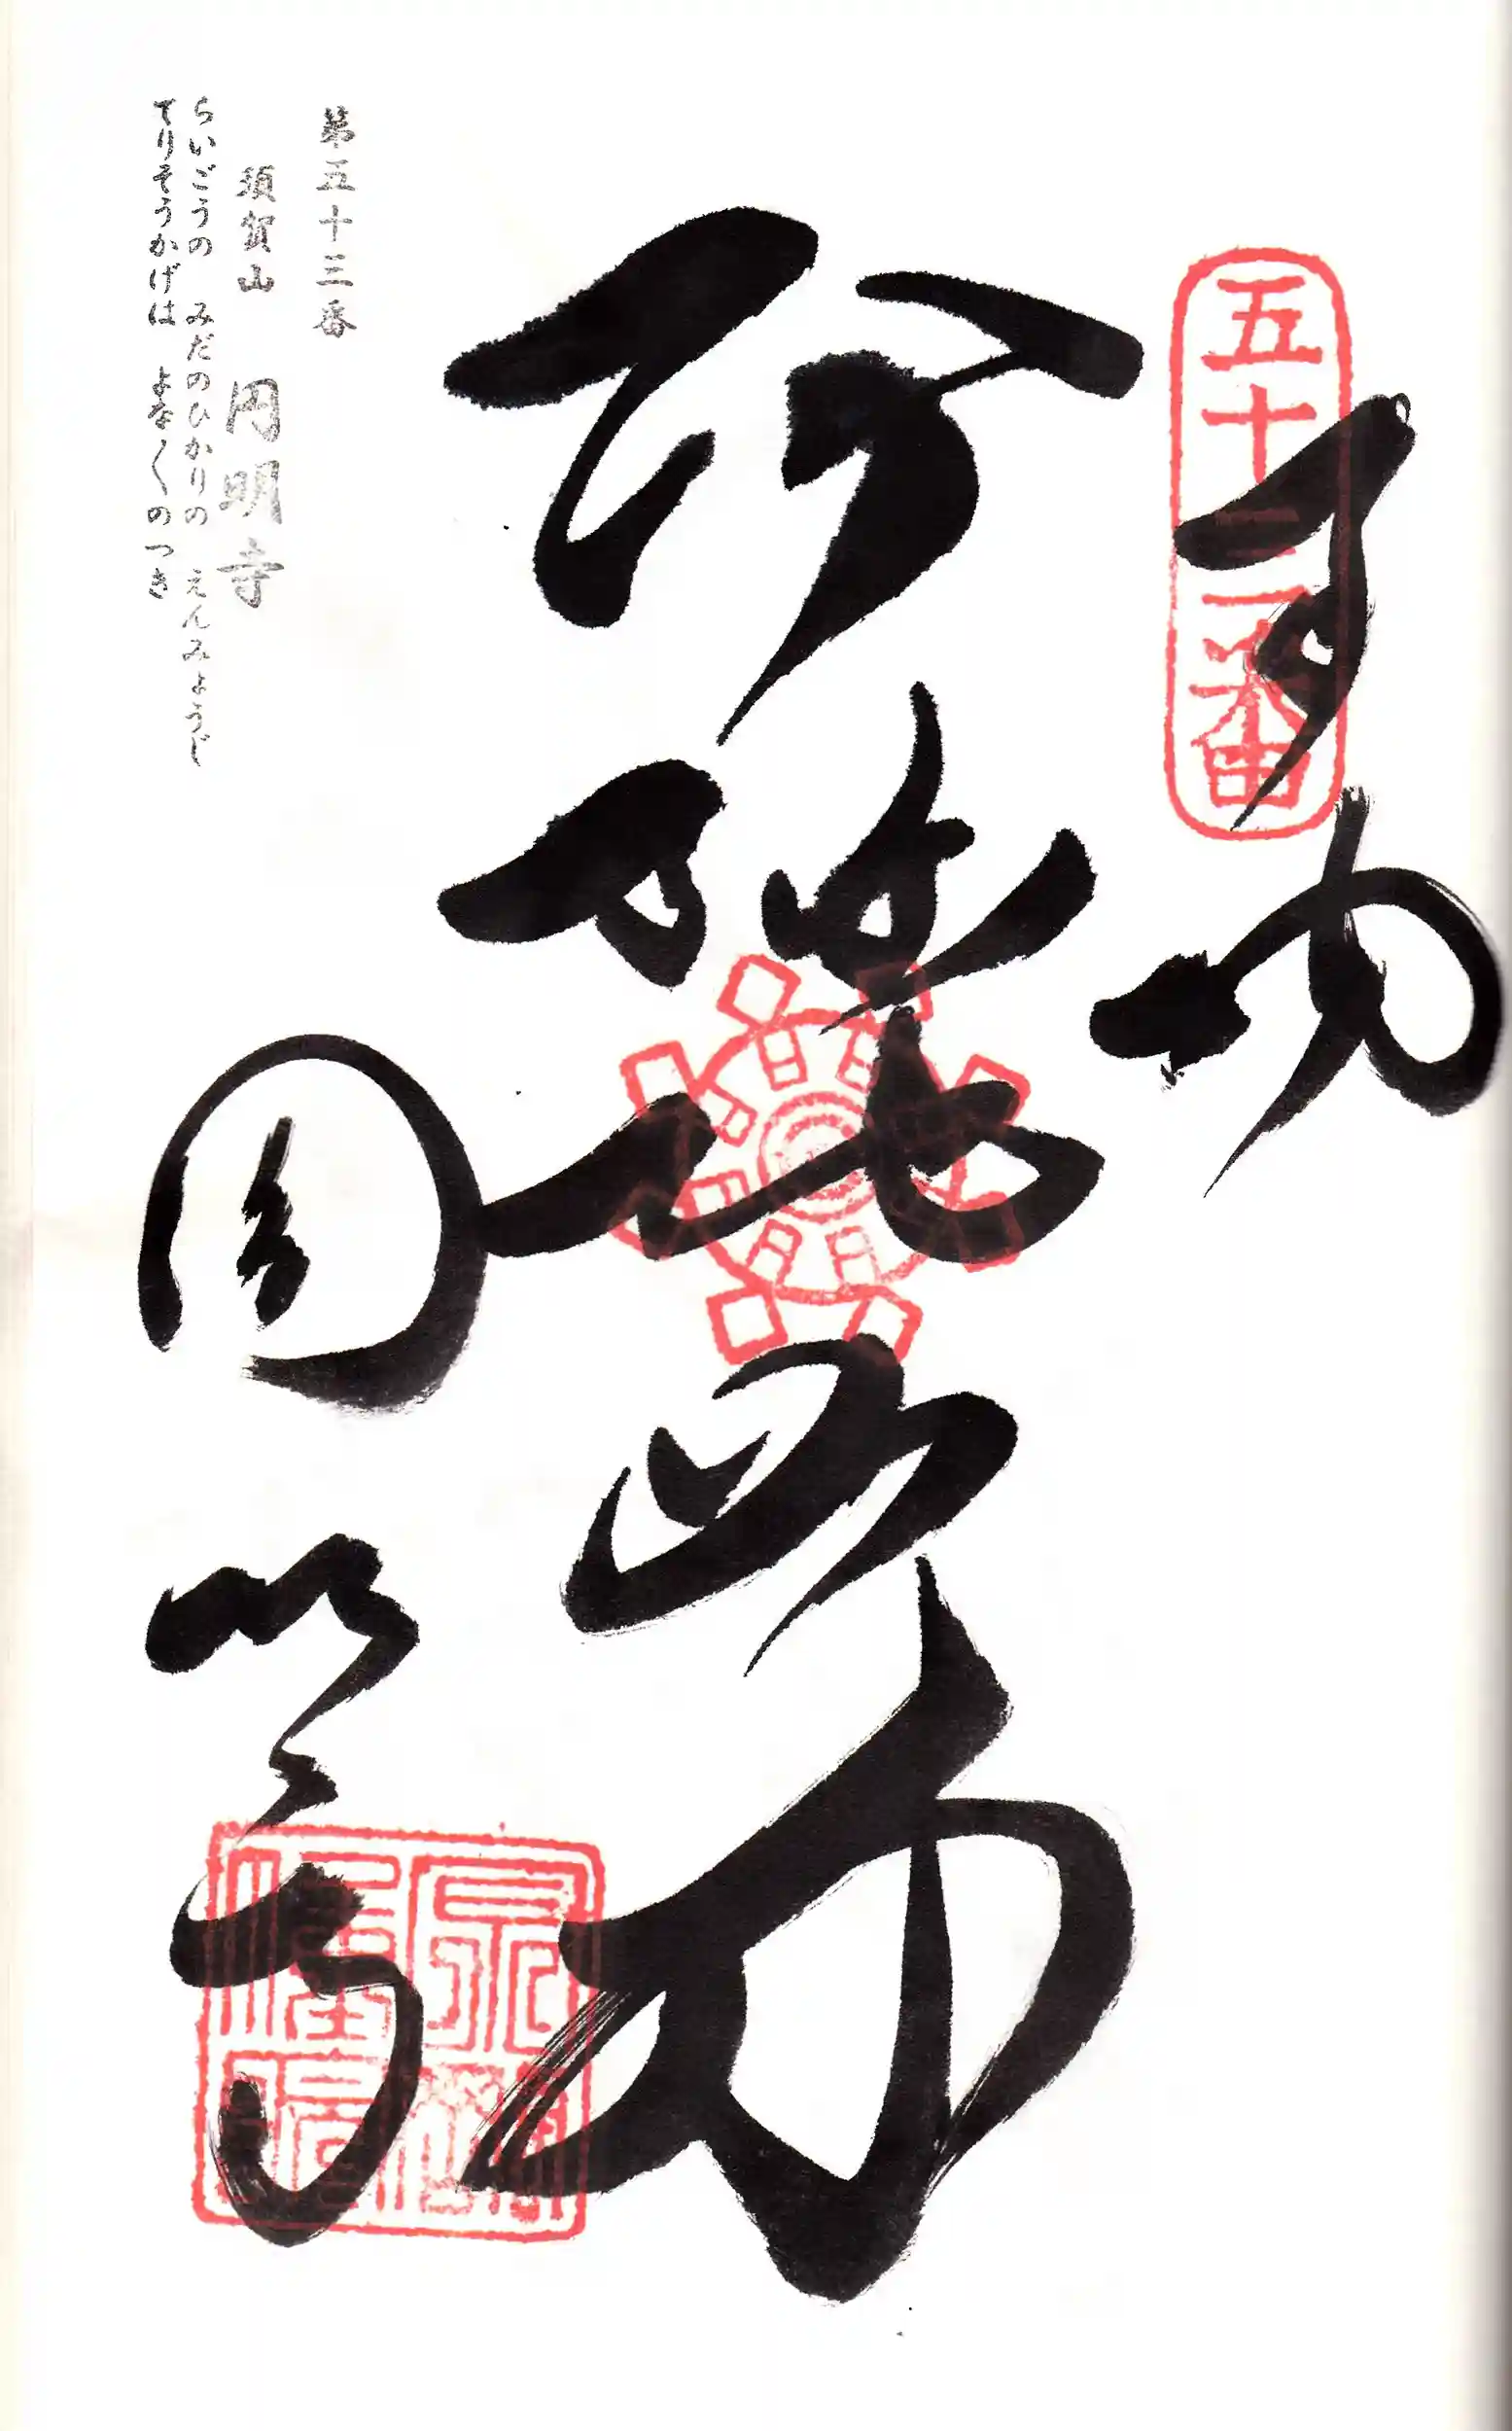 五十三番
奉納
阿弥陀如来
圓明寺
第五十三番
須賀山 円明寺
らいごうの みだのひかりの えんみょうじ
てりそうかげは よな〱のつき